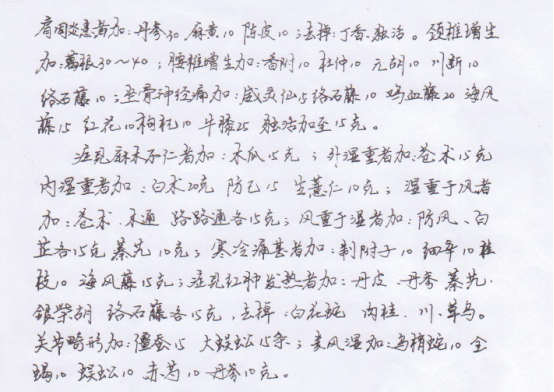 肩周炎患者加:丹参30 麻黄10 陈皮10;去掉:丁香.独活。颈椎增生
加:葛根30~40;腰椎增生加:香附10 杜仲10 元胡10 川断10
络石藤10;坐骨神经痛加:威灵仙15络石藤10 鸡血藤20 海风
藤15 红花10枸杞10 牛膝25 独活加至15克。
症见麻木不仁者加:木瓜15克;外湿重者加:苍术15克
内湿重者加:白术20克 防己15 生薏仁10克;湿重于风者
加:苍术.木通 路路通各15克;风重于湿者加:防风.白
芷各15克 秦艽10克;寒冷痛甚者加:制附子10 细辛10桂
枝10 海风藤15克;症见红肿发热者加:丹皮 丹参 秦艽.
银柴胡 络石藤各15克,去掉:白花蛇 肉桂.川.草乌。
关节畸形加:僵蚕15 大蜈蚣15条;类风湿加:乌梢蛇10 全
蝎10 蜈蚣10 赤芍10 丹参10克。